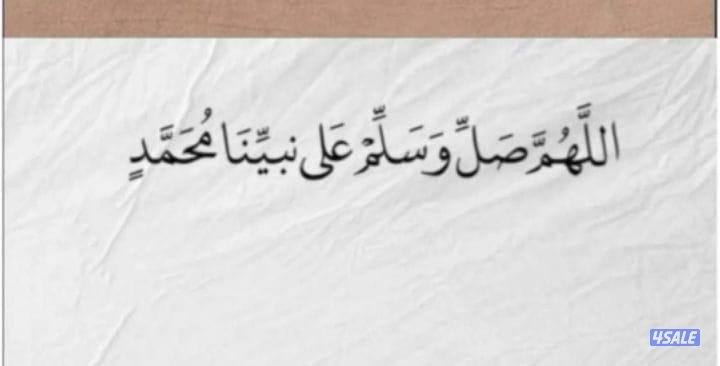 اللَّهُمَّ صَلِّ وَسَلِّمْ عَلى نبيِّنَا مُحَمَّدٍ
4SALE